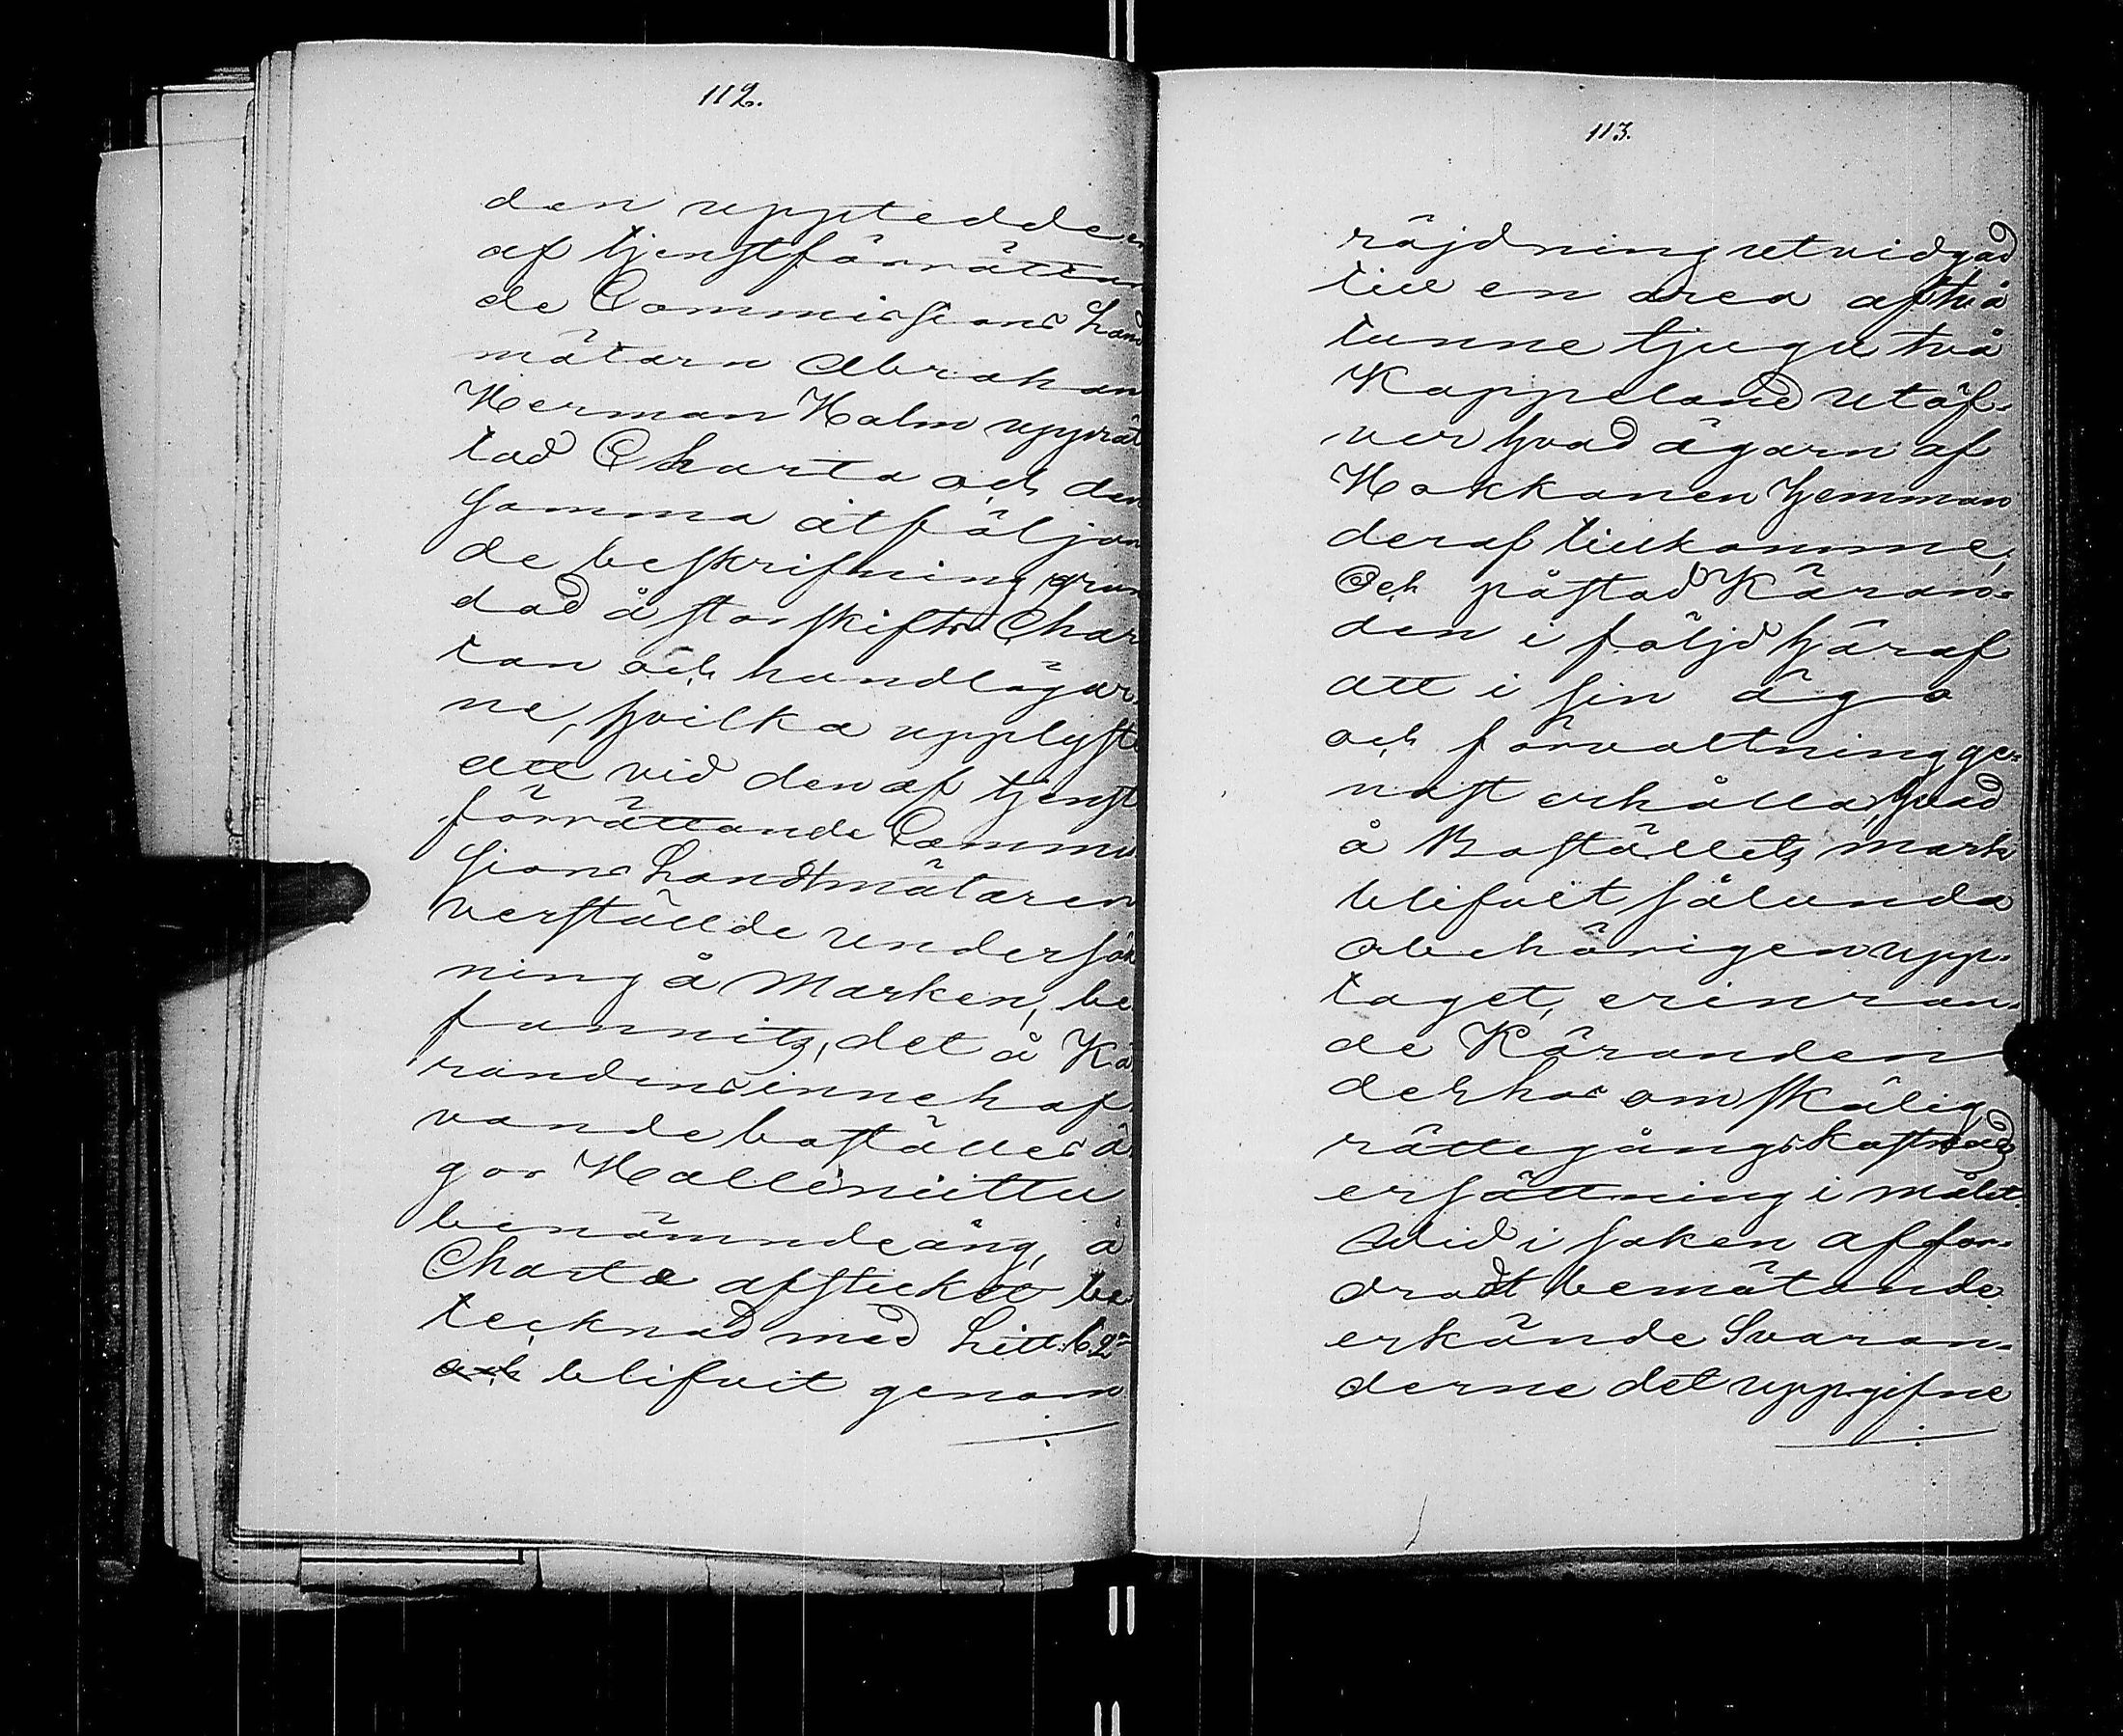 112.
den upptedde en
af tjenstförrättan
de Commissions Land
mätarn Abraham
Herman Holm upprät
tad Charta och den
samma åtföljan
de beskrifning, grun
dad å storskifts Char
tan och handlägar
ne, hvilka upplyste
att vid den af tjenst
förrättande Commis
sions Landtmätaren
verställde undersök
ning å Marken, be
funnits, det å Kä
randens innehaf
vande boställes ä
gor Halliniittu
benämnde äng, å
Charta afstucket be
tecknad med Litt. b.2
och blifvit genom
113.
röjdning utvidgad
till en area af två
tunne tjugu två
Kappeland utöf-
ver hvad ägarn af
Hokkanen hemman
deraf tillkomme,
Och påstod Käran-
den i följd häraf
att i sin ägo
och förvaltning ge-
nast erhålla, hvad
å Boställets mark
blifvit sålunda
obehörigen upp-
taget, erinran-
de Käranden
derhos om skälig
rättegångskostnads
ersättning i målet.
Wid i saken affor-
dradt bemötande
erkände Svaran-
derne det uppgifne